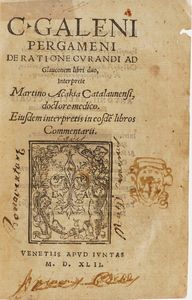 C. GALENI
PERGAMENI
DE RATIONE CVRANDI AD
Glauconem libri duo,
Interprete
Martino Acakia Catalaunensi,
doctore medico.
Eiusdem interpretis in eosdē libros
Commentarii.
VENETIIS APVD IVNTAS
M. D. XLII.